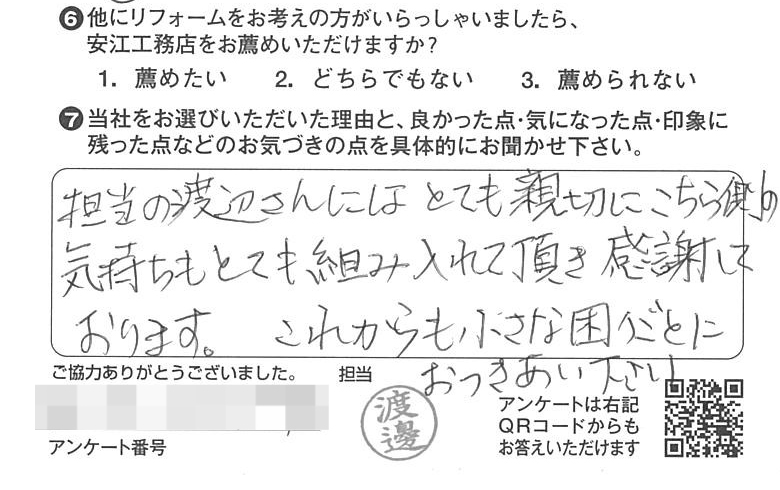 ❻他にリフォームをお考えの方がいらっしゃいましたら、
安江工務店をお薦めいただけますか?
1. 薦めたい 2. どちらでもない 3. 薦められない
❼当社をお選びいただいた理由と、良かった点・気になった点・印象に
残った点などのお気づきの点を具体的にお聞かせ下さい。
担当の渡辺さんにはとても親切にこちら側の
気持ちもとても組み入れて頂き感謝して
おります。これからも小さな困りごとに
おつきあい下さい
ご協力ありがとうございました。 担当
渡邊
アンケート番号
アンケートは右記
QRコードからも
お答えいただけます